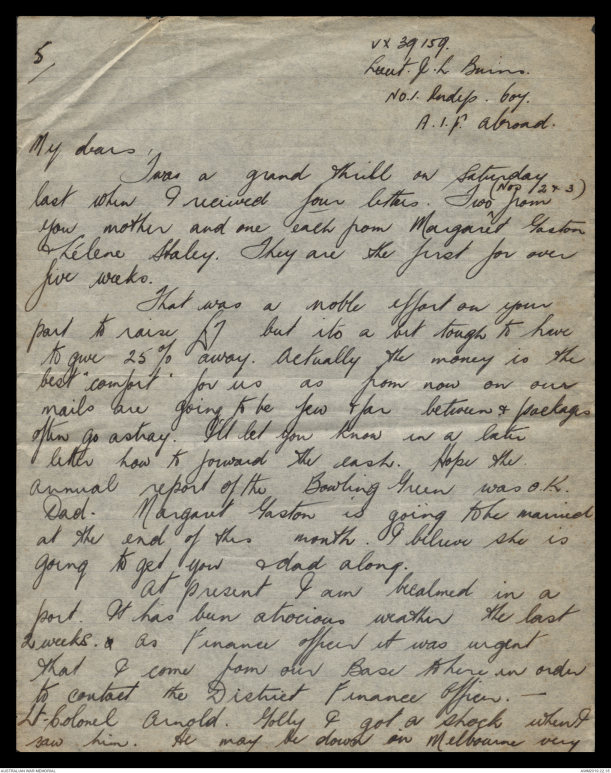 5/
VX 39159.
Lieut. J. L Burns.
No.1. Indep. Coy.
A.I.F. abroad.
My dears,
Twas a grand thrill on Saturday
last when I received four letters. Two (Nos 2 & 3) from
you mother and one each from Margaret Gaston
& Lélene Staley. They are the first for over
five weeks.
That was a noble effort on your
part to raise £7 but its a bit tough to have
to give 25% away. Actually the money is the
best "comfort" for us as from now on our
mails are going to be few & far between & packages
often go astray. I'll let you know in a later
letter how to forward the cash. Hope the
annual report of the Bowling Green was O.K.
Dad. Margaret Gaston is going to be married
at the end of this month. I believe she is
going to get you & dad along.
At present I am becalmed in a
port. It has been atrocious weather the last
2 weeks. As Finance officer it was urgent
that I come from our Base to here in order
to contact the District Finance Officer. —
Lt-Colonel Arnold. Golly I got a shock when I
saw him. He may be down in Melbourne very
AUSTRALIAN WAR MEMORIAL